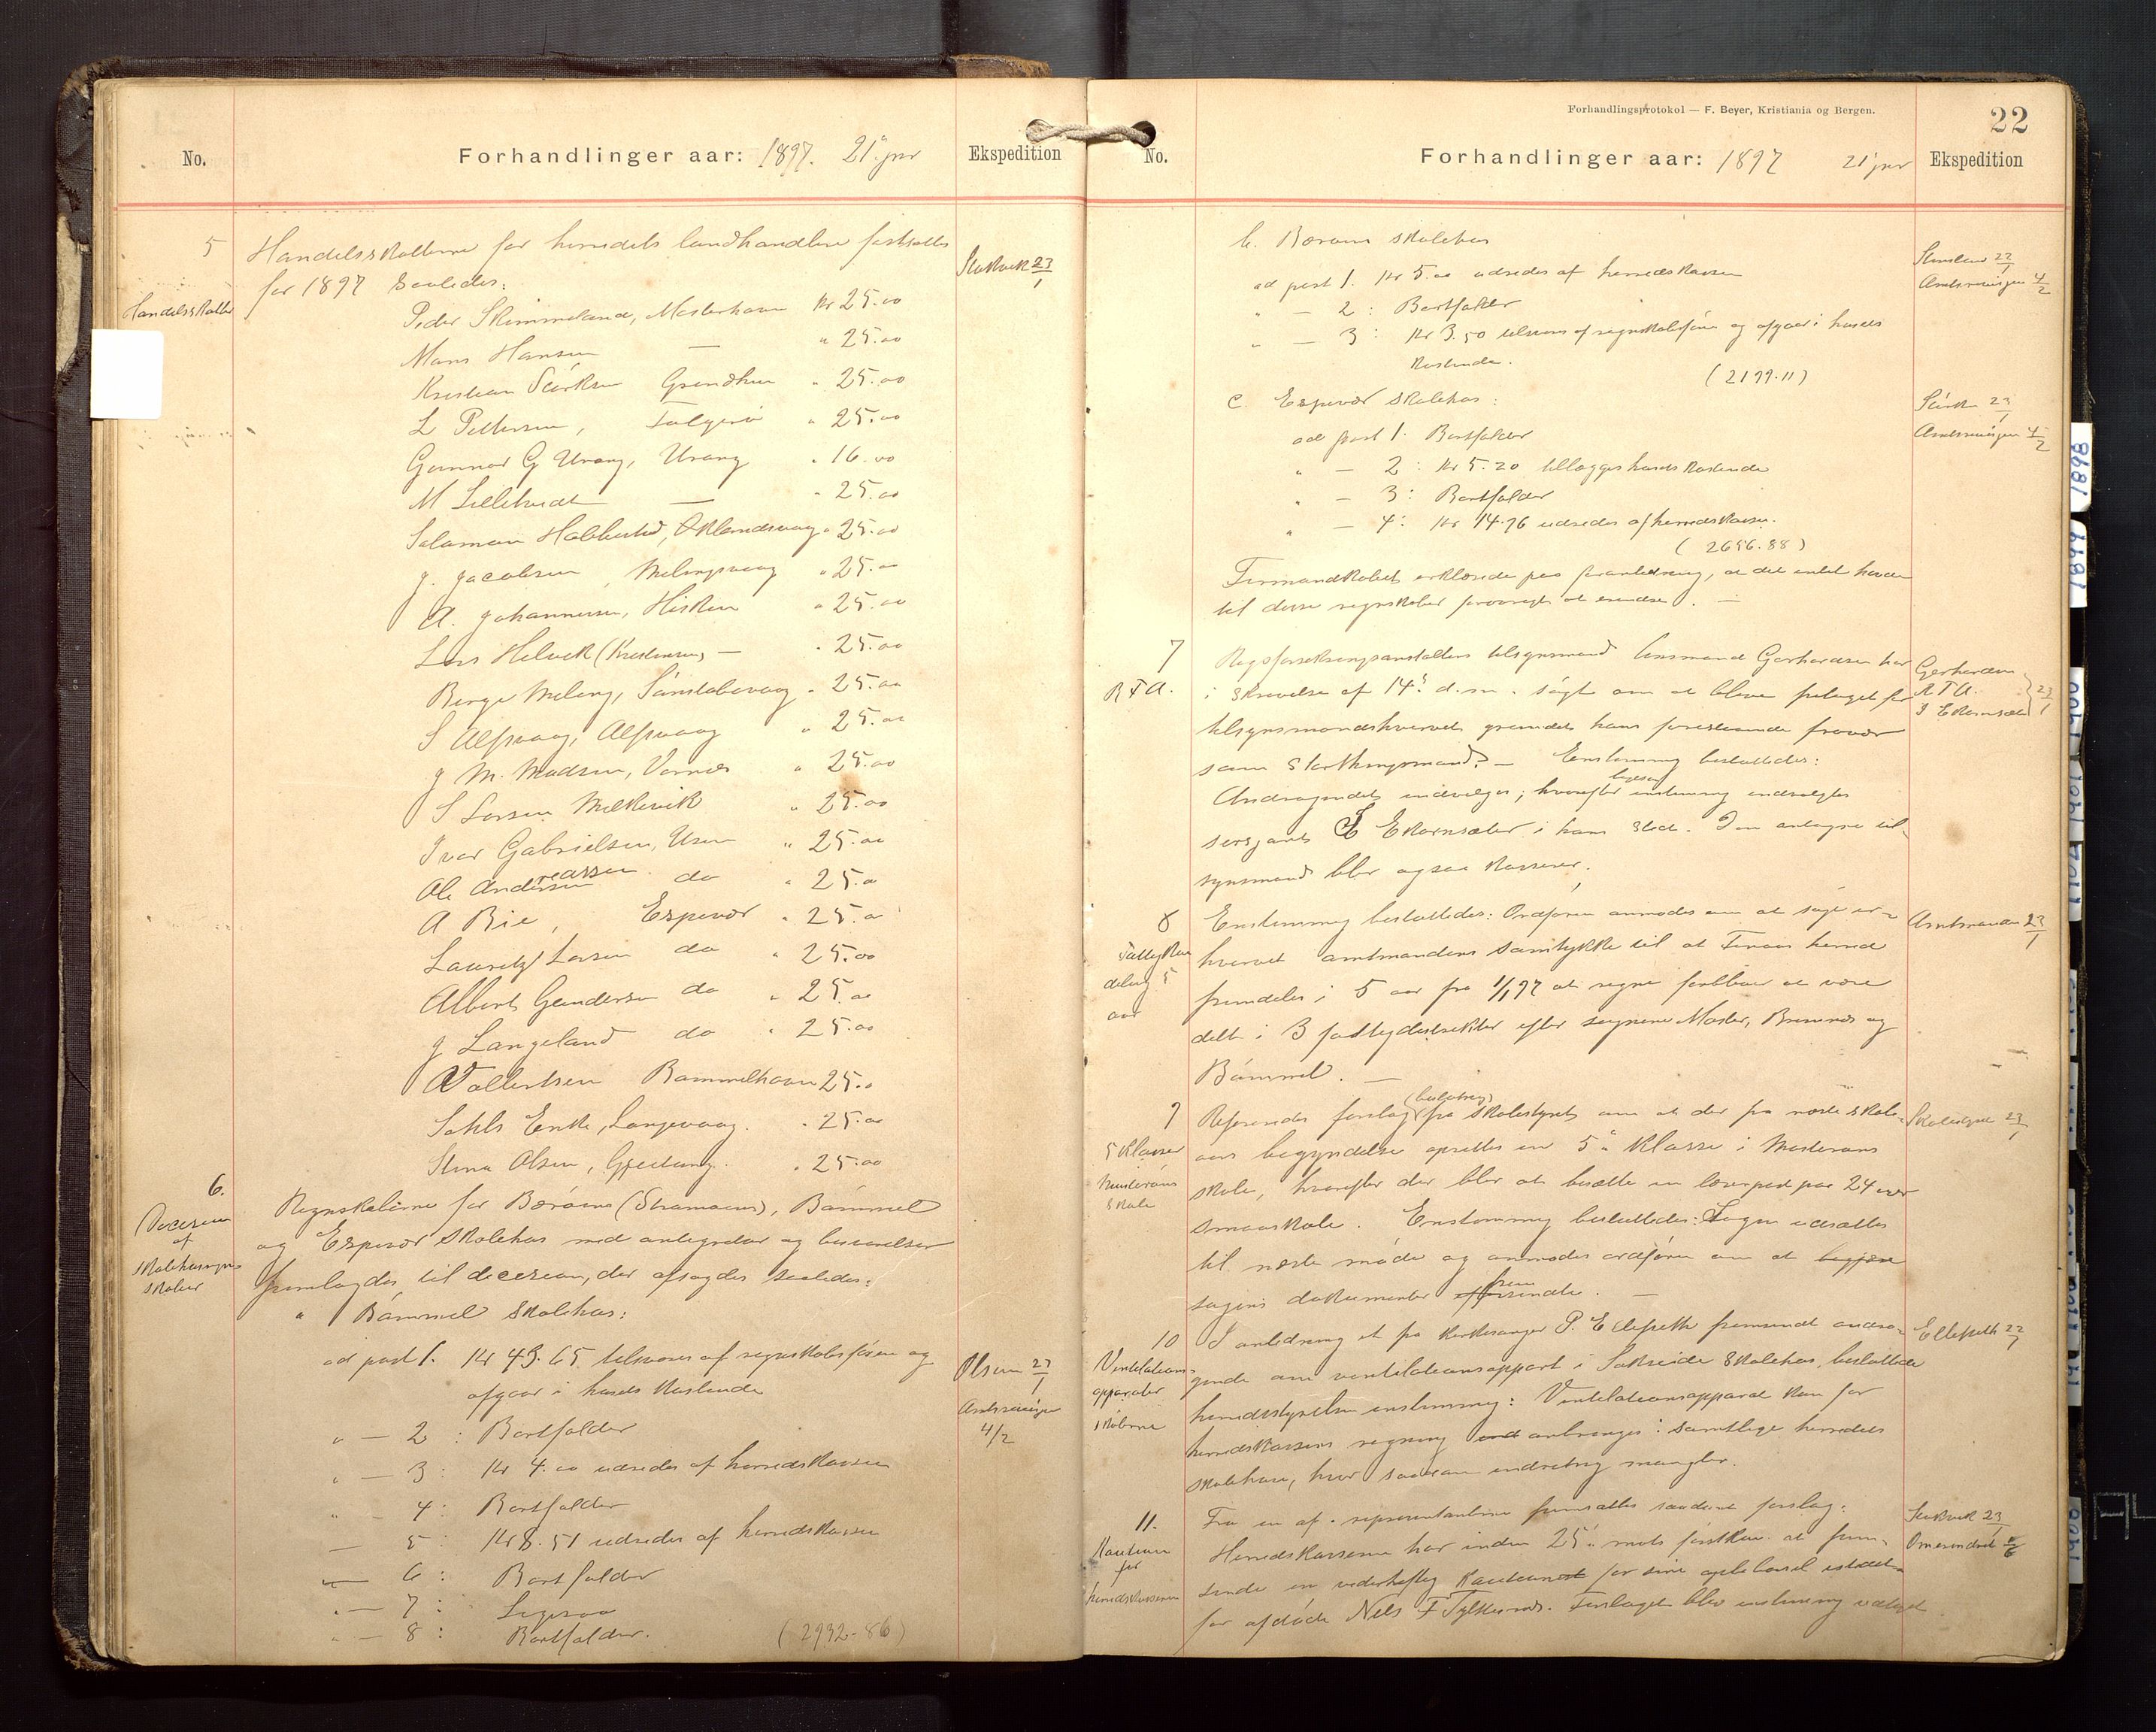 No.
Forhandlinger aar: 1897. 21 jnr
Ekspedition
5
Handelsskatter
Handelsskatterne for herredets landhandlere fastsattes
for 1897 saaledes:
Stokvik 23/1
Peder Skimmeland, Mosterhavn Kr 25.00
Mons Hansen — " 25.00
Kristian Størksen " 25.00
L Pettersen, Folgerø " 25.00
Gunnar G Urang, Urang " 16.00
M Lillehvedt — " 25.00
Salamon Habbestad, Øklandsvaag " 25.00
J. Jacobsen, Melingsvaag " 25.00
A. Johannessen, Hisken " 25.00
Lars Helvik (Kristensen) — " 25.00
Berge Meling, Sønstabøvaag " 25.00
S Alfsvaag, Alfsvaag " 25.00
J M. Madsen, Vornes " 25.00
S Larsen Melkevik " 25.00
Ivar Gabrielsen, Usen " 25.00
Ole Andreassen do " 25.00
A Bie, Espevær " 25.00
Lauritz Larsen do " 25.00
Albert Gundersen do " 25.00
J Langeland do " 25.00
A Vollertsen Bømmelhavn 25.00
Sahls Enke, Langevaag. " 25.00
Stina Olsen, " 25.00
6.
Decision
af
skolehusregn-
skaber
Regnskaberne for Børøens (Stramoens), Bømmel
og Espevær skolehus med antegnelser og besvarelser
fremlagdes til decision, der afsagdes saaledes:
a Bømmel skolehus:
ad post 1. Kr 43.65 tilsvares af regnskabsføren og
afgaar i husets kostende
Olsen 23/1
4/2
" — 2 : Bortfalder
" — 3 : Kr 4.00 udredes af herredskassen
" — 4 : Bortfalder
— 5 : Kr 8.51 udredes af herredskassen
" — 6 : Bortfalder
" — 7 : Ligesaa
" — 8 : Bortfalder. (2932-86)
Forhandlingsprotokol — F. Beyer, Kristiania og Bergen.
22
No.
Forhandlinger aar: 1897 21 jnr
Ekspedition
b. Børøens skolehus
ad post 1. Kr 5.00 udredes af herredskassen
" — 2 : Bortfalder
" — 3 : Kr 3.50 tilsvares af regnskabsføren og afgaar i husets
kostende.
(2199.11)
c. Espevær skolehus:
ad post 1. Bortfalder
" — 2 : Kr 5.20 tillægges husets kostende
" — 3 : Bortfalder
" — 4 : Kr 14.76 udredes af herredskassen.
(2656.88)
Formandskabet erklærede paa foranledning, at det intet havde
til disse regnskaber forøvrigt at erindre. —
7
R F A.
Rigsforsikringsanstaltens tilsynsmand lensmand Gerhardsen har
i skrivelse af 14. d.m. søgt om at blive fritaget for
tilsynsmandshvervet grundet hans forestaaende fravær
som storthingsmand. — Enstemmig besluttedes:
Andragendet indvilges; hvorefter ligesaa enstemmig indvalgtes
sersjant E Ekornsæter i hans sted. Den antagne til-
synsmand blev ogsaa kasserer.
Gerhardsen
R F A.
E Ekornsæter
23/1
8
5
aar
Enstemmig besluttedes: Ordføren anmodes om at søge er-
hvervet amtmandens samtykke til at Finaas herred
fremdeles i 5 aar fra 1/1 97 at regne forbliver at være
delt i 3 fattigdistrikter efter sognene Moster, Bremnes og
Bømmel. —
Amtmanden 23/1
9
5 klasser
Mosterøens
skole
Refereredes forslag (beslutning) fra skolestyret om at der fra næste skole-
aars begyndelse oprettes en 5te klasse i Mosterøens
skole, hvorefter der blir at besætte en lærerpost paa 24 uger
smaaskole. Enstemmig besluttedes: Sagen udsættes
til næste møde og anmodes ordføren om at begjære
sagens dokumenter fremsendte. —
Skolestyret 23/1
10
Ventilations-
apparater
i skolerne
I anledning et fra kirkesanger P. Ellefseth fremsendt andra-
gende om ventilationsapparat i Sakseide skolehus besluttede
herredsstyrelsen enstemmig: Ventilationsapparat kan for
herredskassens regning anbringes i samtlige herredets
skolehuse, hvor saadan indretning mangler.
Ellefseth 23/1
11.
Kaution
for
herredskasseren
Fra en af repræsentanterne fremsattes saadant forslag:
Herredskasseren har inden 25de marts førstk. at frem-
sende en vederheftig kautionist for sine istedet
for afdøde Nels F Tylkesnes. Forslaget blev enstemmig vedtaget
Stokvik 23/1